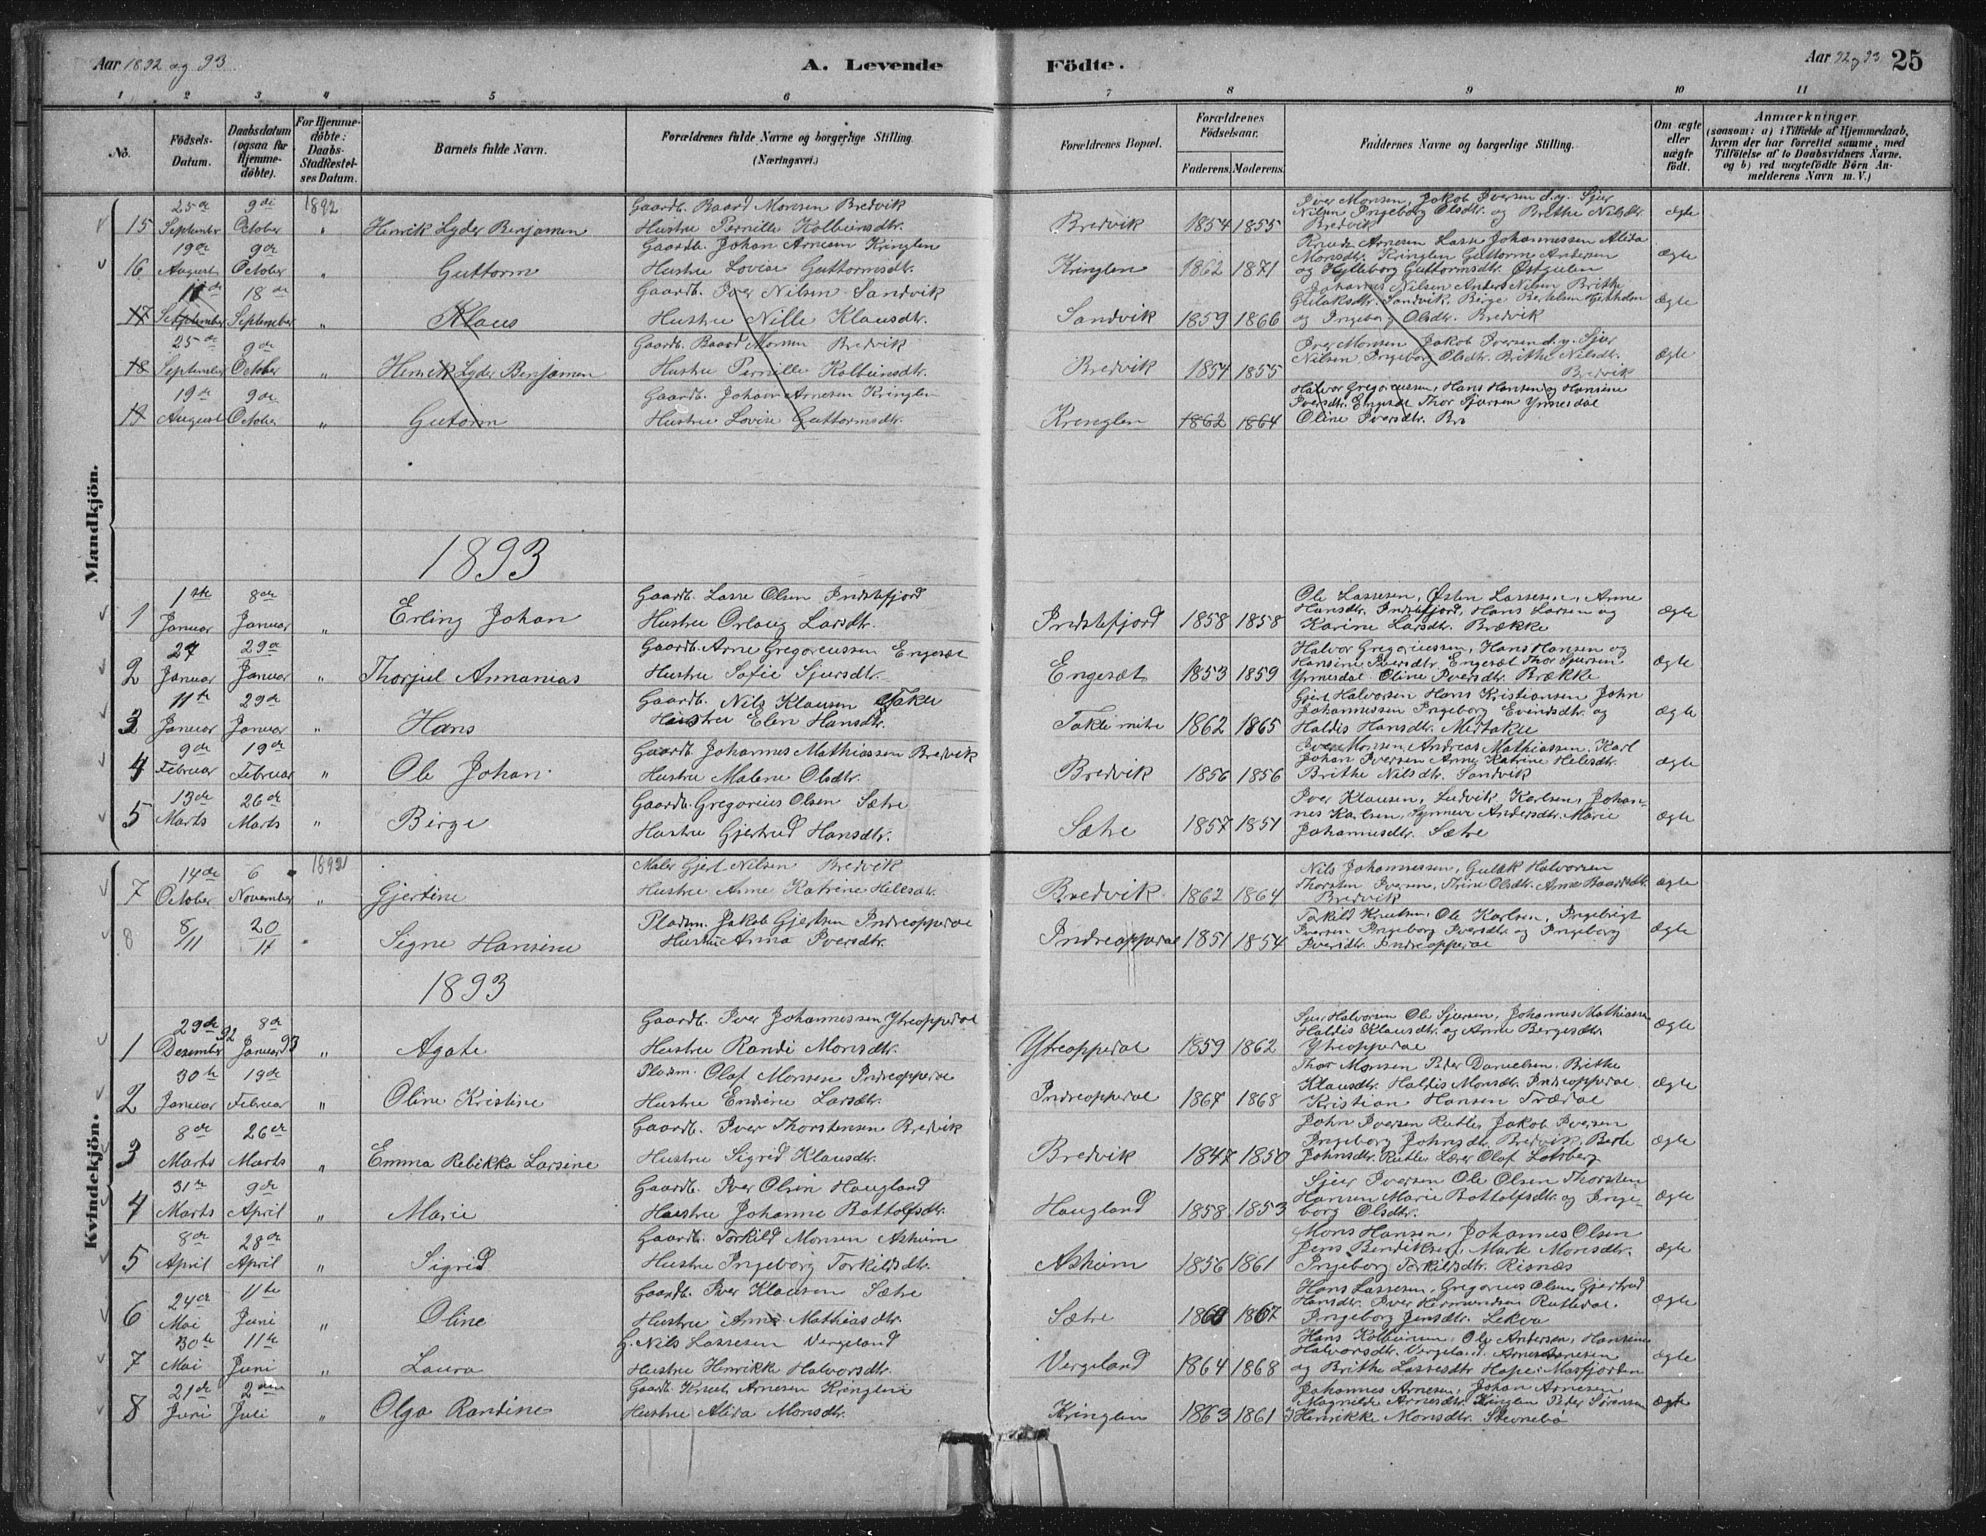 Aar 1892 og 93.
A. Levende Födte.
Aar 92 og 93
25
1 2 3 4 5 6 7 8 9 10 11
No.
Födsels-Datum.
Daabsdatum (ogsaa for Hjemmedöbte).
For Hjemmedöbte: Daabs-Stadfæstelses Datum.
Barnets fulde Navn.
Forældrenes fulde Navne og borgerlige Stilling. (Næringsvei.)
Forældrenes Bopæl.
Forældrenes Födselsaar. Faderens. Moderens.
Faddernes Navne og borgerlige Stilling.
Om ægte eller uægte födt.
Anmærkninger (saasom: a) i Tilfælde af Hjemmedaab, hvem der har forrettet samme, med Tilföielse af to Daabsvidners Navne, og b) ved uægtefödte Börn Anmelderens Navn m. V.)
Mandkjön.
1892
15 25de September 9de October " Henrik Lyder Benjamen Gaardb. Baard Monsen Bredvik Hustru Pernille Kolbeinsdtr. Bredvik 1854 1855 Iver Monsen, Jakob Iversen d.y. Sjur Nilsen, Ingeborg Olsdtr. og Brithe Nilsdtr. Bredvik ægte
16 19de August 9de October " Guttorm Gaardb. Johan Arnesen Kringlen Hustru Lovise Guttormsdtr. Kringlen 1862 1871 Knud Arnesen Lasse Johannessen Alida Monsdtr. Kringlen Guttorm Andersen og Hylleborg Guttormsdtr. ægte
17 September 18de September " Klaus Gaardb. Iver Nilsen Sandvik Hustru Nille Klausdtr. Sandvik 1859 1866 Johannes Nilsen Anders Nilsen Brithe Gulaksdtr. Sandvik Børge Bertelsen og Ingeborg Olsdtr. Bredvik Ægte
18 25de September 9de October " Henrik Lyder Benjamen Gaardb. Baard Monsen Bredvik Hustru Pernille Kolbeinsdtr. Bredvik 1854 1855 Iver Monsen Jakob Iversen d.y. Sjur Nilsen Ingeborg Olsdtr. Brithe Nilsdtr. Bredvik Ægte
19 19de August 9de October " Gutorm Gaardb. Johan Arnesen Kringlen Hustru Lovise Guttormsdtr. Kringlen 1862 1864 Halvor Gregoriussen, Hans Hansen og Hansine Iversdtr. Engesæt Thor Sjursen Ynnesdal Oline Iversdtr. Bre
1893
1 1ste Januar 8de Januar " Erling Johan Gaardb. Lasse Olsen Indrefjord Hustru Orloug Larsdtr. Indrefjord 1858 1858 Ole Lassesen, Østen Lassesen, Anne Hansdtr. Indrefjord, Hans Larsen og Karine Larsdtr. Brække ægte
2 27 Januar 29de Januar " Thorjul Annanias Gaardb. Arne Gregoriussen Engesæt Hustru Sofie Sjursdtr. Engesæt 1853 1859 Halvor Gregoriussen, Hans Hansen og Hansine Iversdtr. Engesæt Thor Sjursen Ynnesdal Oline Iversdtr. Brække Ægte
3 11te Januar 29de Januar " Hans Gaardb. Nils Klausen Takle Hustru Elen Hansdtr. Takle mitre 1862 1865 Gjert Halvorsen Hans Kristiansen John Johannessen Ingeborg Evindsdtr. og Haldis Hansdtr. Midtakle Ægte
4 9de Februar 19de Februar " Ole Johan Gaardb. Johannes Mathiassen Bredvik Hustru Malene Olsdtr. Bredvik 1856 1856 Iver Monsen, Andreas Mathiassen, Karl Johan Iversen Anne Katrine Helesdtr. Brithe Nilsdtr. Sandvik ægte
5 13de Marts 26de Marts " Birge Gaardb. Gregorius Olsen Sætre Hustru Gjertrud Hansdtr. Sætre 1857 1851 Iver Klausen, Ludvik Karlsen, Johannes Karlsen, Synneve Andersdtr. Marie Johannesdtr. Sætre Ægte
Kvindekjön.
1892
7 14de October 6 November " Gjertine Maler Gjert Nilsen Bredvik Hustru Anne Katrine Helesdtr. Bredvik 1862 1864 Nils Johannessen, Gulak Halvorsen Thorsten Iversen, Trine Olsdtr. Anne Baardsdtr. Bredvik ægte
8 8/11 20/11 " Signe Hansine Pladsm. Jakob Gjertsen Indreopperdal Hustru Anna Iversdtr. Indreopperdal 1851 1854 Torkild Knutsen, Ole Karlsen, Ingebrigt Iversen Ingeborg Iversdtr. og Ingeborg Iversdtr. Indreopperdal Ægte
1893
1 29de Desember 92 8de Januar 93 " Agate Gaardb. Iver Johannessen Ytreopperdal Hustru Randi Monsdtr. Ytreopperdal 1859 1862 Sjur Halvorsen Ole Sjursen, Johannes Mathiassen Haldis Klausdtr. og Anne Børgesdtr. Ytreopperdal Ægte
2 30te Januar 19de Februar " Oline Kristine Pladsm. Olaf Monsen Indreopperdal Hustru Endrine Larsdtr. Indreopperdal 1867 1868 Thor Monsen Peder Danielsen, Brithe Klausdtr. Haldis Monsdtr. Indreopperdal. Kristian Hansen Trædal ægte
3 8de Marts 26de Marts " Emma Rebikka Larsine Gaardb. Iver Thorstensen Bredvik Hustru Sigrid Klausdtr. Bredvik 1847 1850 John Iversen Rutle, Jakob Iversen Ingeborg Johnsdtr. Bredvik, Berte Johnsdtr. Rutle Lærer Olaf Lotsberg ægte
4 31te Marts 9de April " Marie Gaardb. Iver Olsen Haugland Hustru Johanne Bottolfsdtr. Haugland 1858 1853 Sjur Iversen Ole Olsen Thorsten Hansen Marie Bottolfsdtr. og Ingeborg Olsdtr. ægte
5 8de April 28de April " Sigrid Gaardb. Torkild Monsen Asheim Hustru Ingeborg Torkildsdtr. Asheim 1856 1861 Mons Hansen, Johannes Olsen Jens Bendiksen, Marte Monsdtr. Ingeborg Torkilsdtr. Risnæs ægte
6 24de Mai 11te Juni " Oline Gaardb. Iver Klausen Sætre Hustru Anne Mathiasdtr. Sætre 1860 1867 Hans Lassesen, Gregorius Olsen, Gjertrud Hansdtr. Iver Hermundsen Rutledal Ingeborg Jensdtr. Lekva ægte
7 30te Mai 11te Juni " Laura G. Nils Lassesen Vergeland Hustru Henrikke Halvorsdtr. Vergeland 1864 1868 Hans Kolbeinsen, Ole Andersen, Hansine Halvorsdtr. Vergeland. og Brithe Lassesdtr. Hope i Masfjorden ægte
8 21de Juni 2den Juli " Olga Randine Gaardb. Knut Arnesen Kringlen Hustru Alida Monsdtr. Kringlen 1863 1861 Johannes Arnesen, Johan Arnesen Magnilde Arnesdtr. Kringlen Peder Sørensen Henrikke Monsdtr. Stevnebø ægte